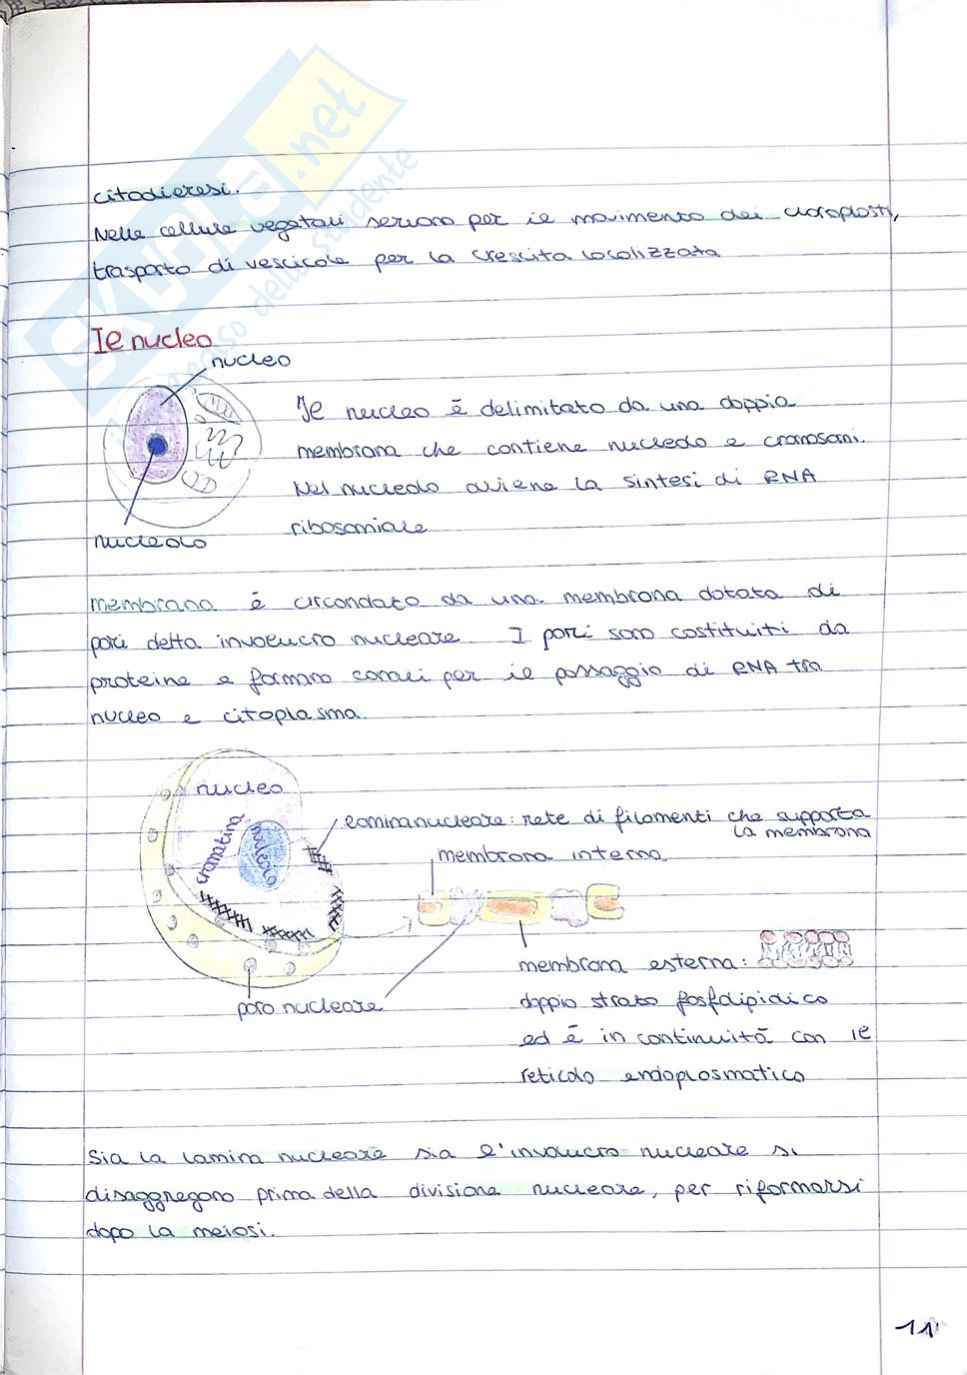 citodieresi.
Nelle cellule vegetali servono per il movimento dei cloroplasti,
trasporto di vescicole per la crescita localizzata
Il nucleo
nucleo
Il nucleo è delimitato da una doppia
membrana che contiene nucleolo e cromosomi.
Nel nucleolo avviene la sintesi di RNA
ribosomiale
nucleolo
membrana è circondato da una membrana dotata di
pori detta involucro nucleare. I pori sono costituiti da
proteine e formano canali per il passaggio di RNA tra
nucleo e citoplasma.
nucleo
cromatina
nucleolo
lamina nucleare: rete di filamenti che supporta
la membrana
membrana interna
membrana esterna:
doppio strato fosfolipidico
ed è in continuità con il
reticolo endoplasmatico
poro nucleare
Sia la lamina nucleare sia l'involucro nucleare si
disaggregano prima della divisione nucleare, per riformarsi
dopo la meiosi.
11
SKUOLA.net
il paradiso dello studente